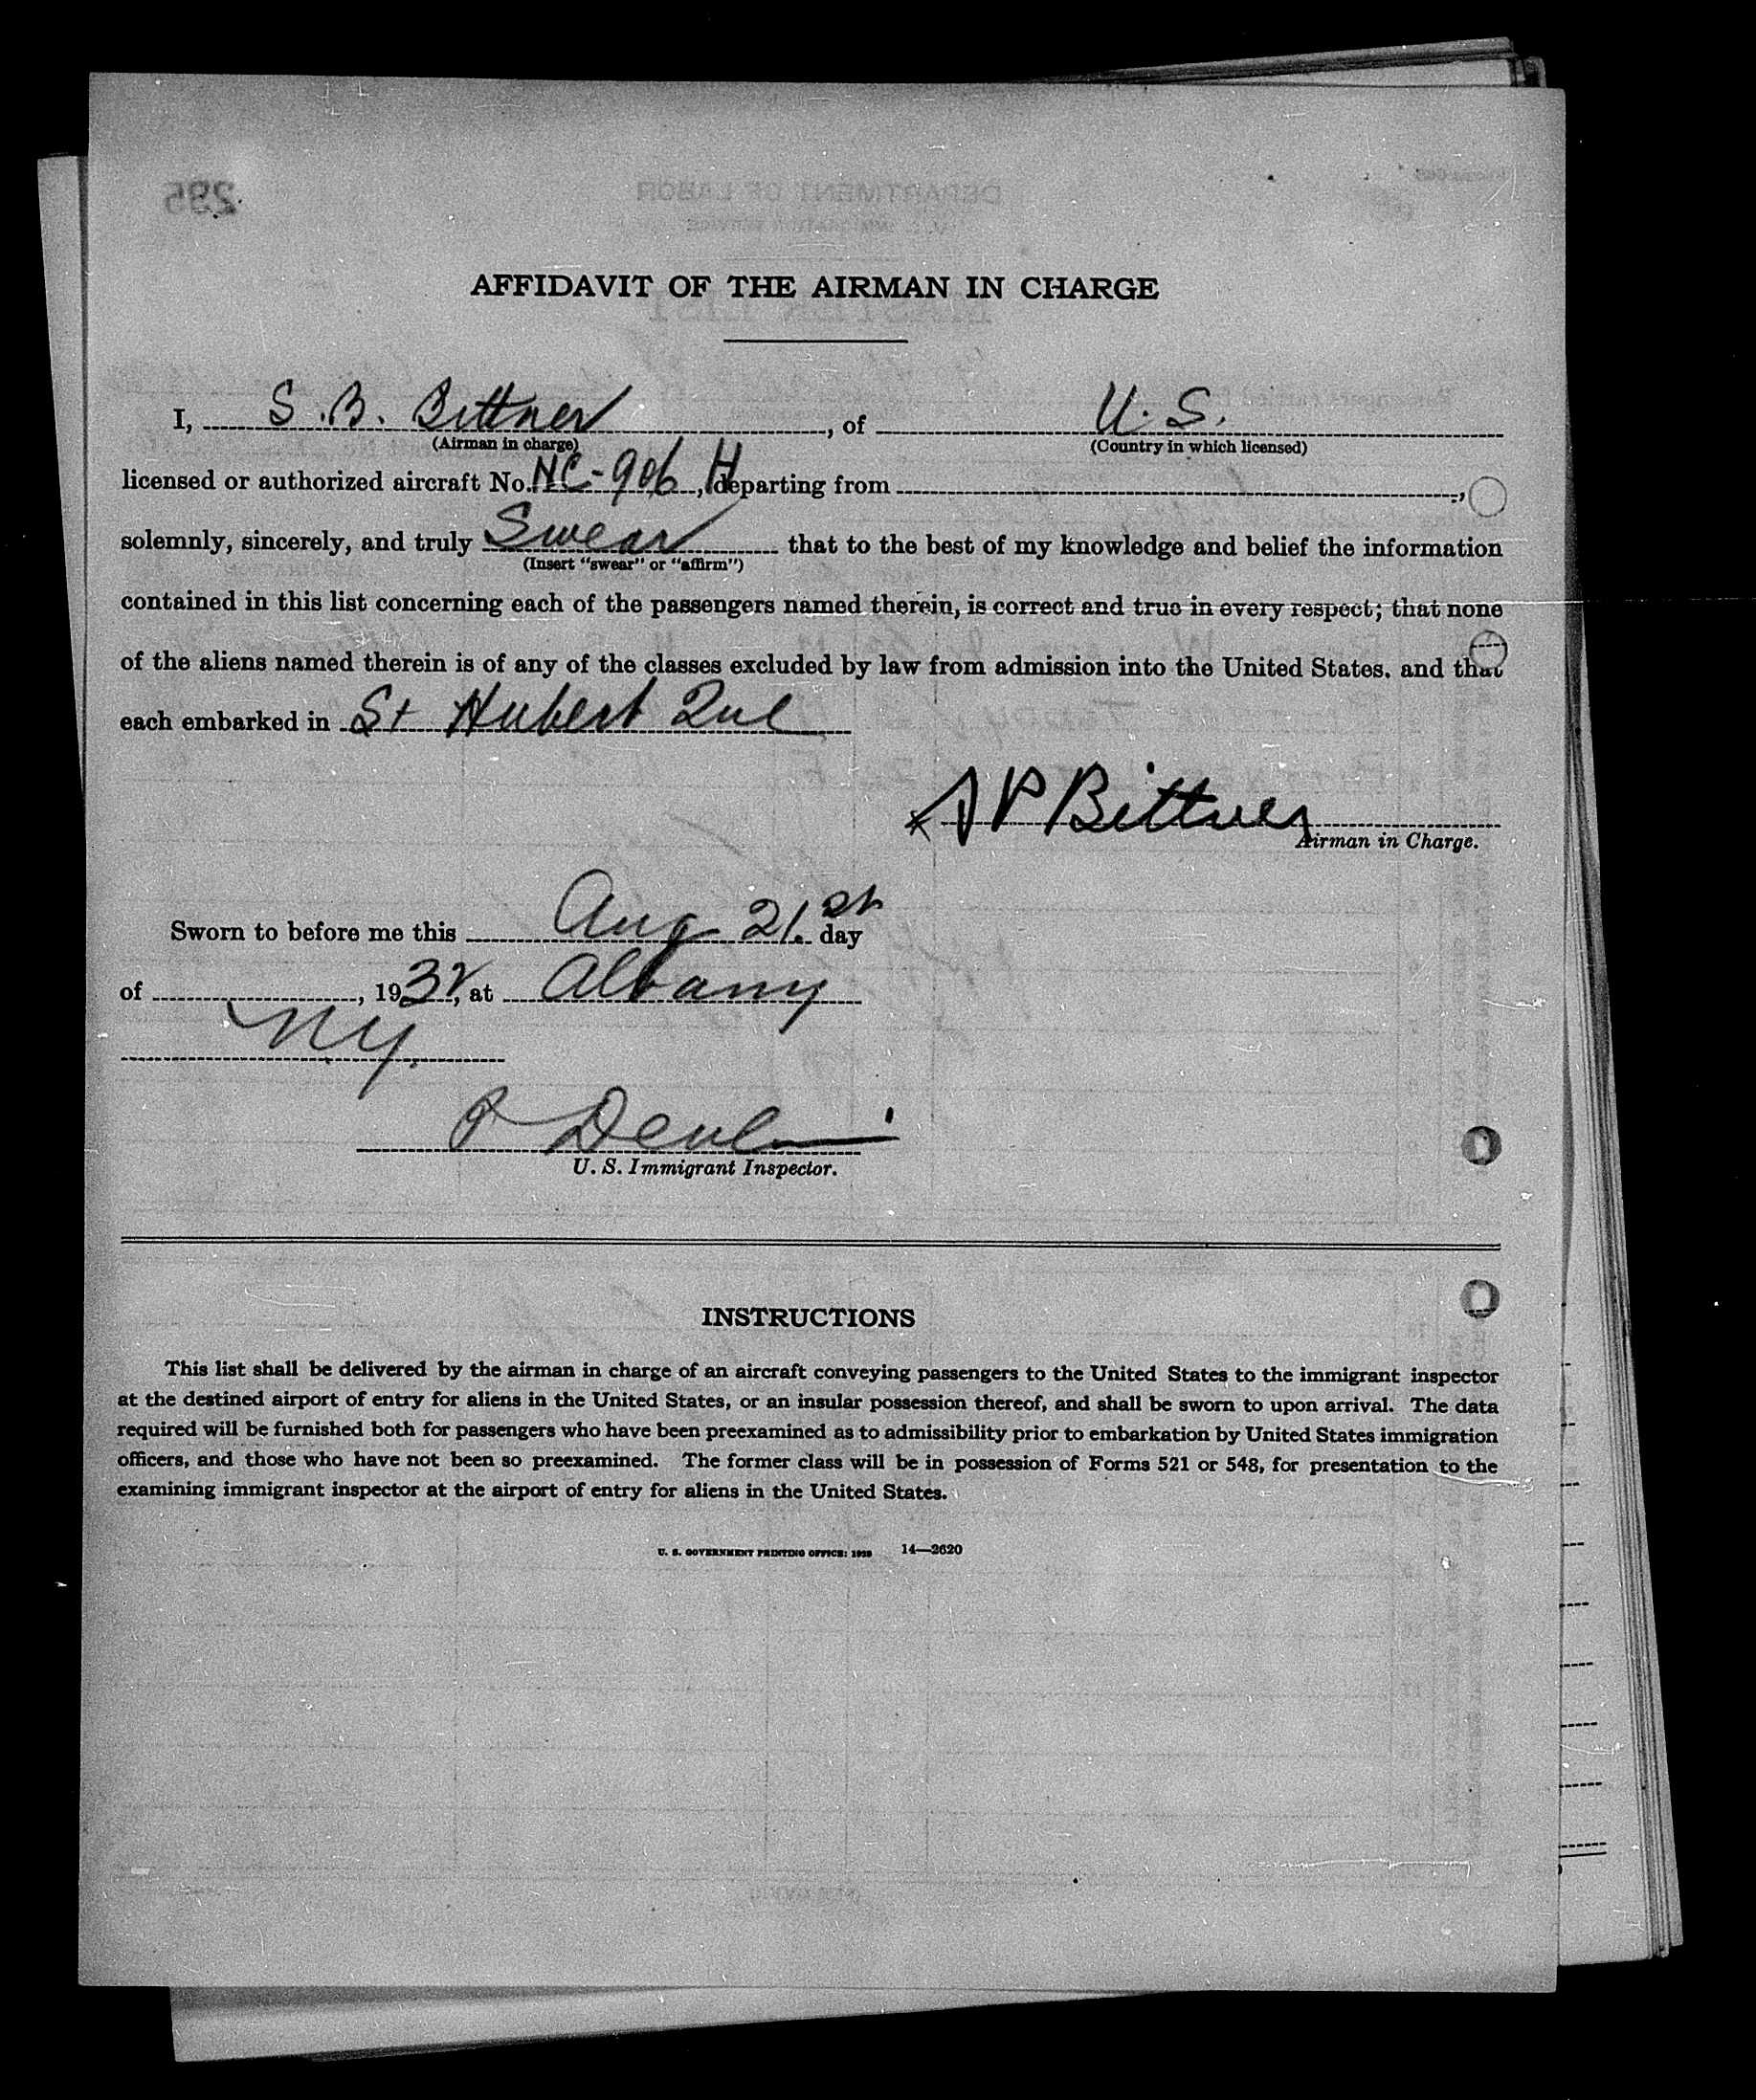 AFFIDAVIT OF THE AIRMAN IN CHARGE
I, S. B. Bittner, of U. S.
(Airman in charge) (Country in which licensed)
licensed or authorized aircraft No. NC-906 H, departing from ,
solemnly, sincerely, and truly Swear that to the best of my knowledge and belief the information
(Insert "swear" or "affirm")
contained in this list concerning each of the passengers named therein, is correct and true in every respect; that none
of the aliens named therein is of any of the classes excluded by law from admission into the United States, and that
each embarked in St Hubert Que
x S P Bittner
Airman in Charge.
Sworn to before me this Aug 21.st day
of , 1932, at Albany
NY.
P Devlin
U. S. Immigrant Inspector.
INSTRUCTIONS
This list shall be delivered by the airman in charge of an aircraft conveying passengers to the United States to the immigrant inspector
at the destined airport of entry for aliens in the United States, or an insular possession thereof, and shall be sworn to upon arrival. The data
required will be furnished both for passengers who have been preexamined as to admissibility prior to embarkation by United States immigration
officers, and those who have not been so preexamined. The former class will be in possession of Forms 521 or 548, for presentation to the
examining immigrant inspector at the airport of entry for aliens in the United States.
U. S. GOVERNMENT PRINTING OFFICE: 1929 14—2620